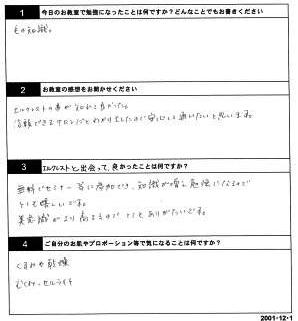 1 今日のお教室で勉強になったことは何ですか？どんなことでもお書きください
毛の知識。
2 お教室の感想をお聞かせください
エルクレストの事が知れて良かった。
信頼できるサロンだとわかりましたので安心して通いたいと思います。
3 エルクレストと出会って、良かったことは何ですか？
無料でセミナー等に参加でき、知識が増え勉強になるので
とても嬉しいです。
美意識がより高まるので とても ありがたいです。
4 ご自分のお肌やプロポーション等で気になることは何ですか？
くすみや乾燥
むくみ、セルライト
2001-12-1